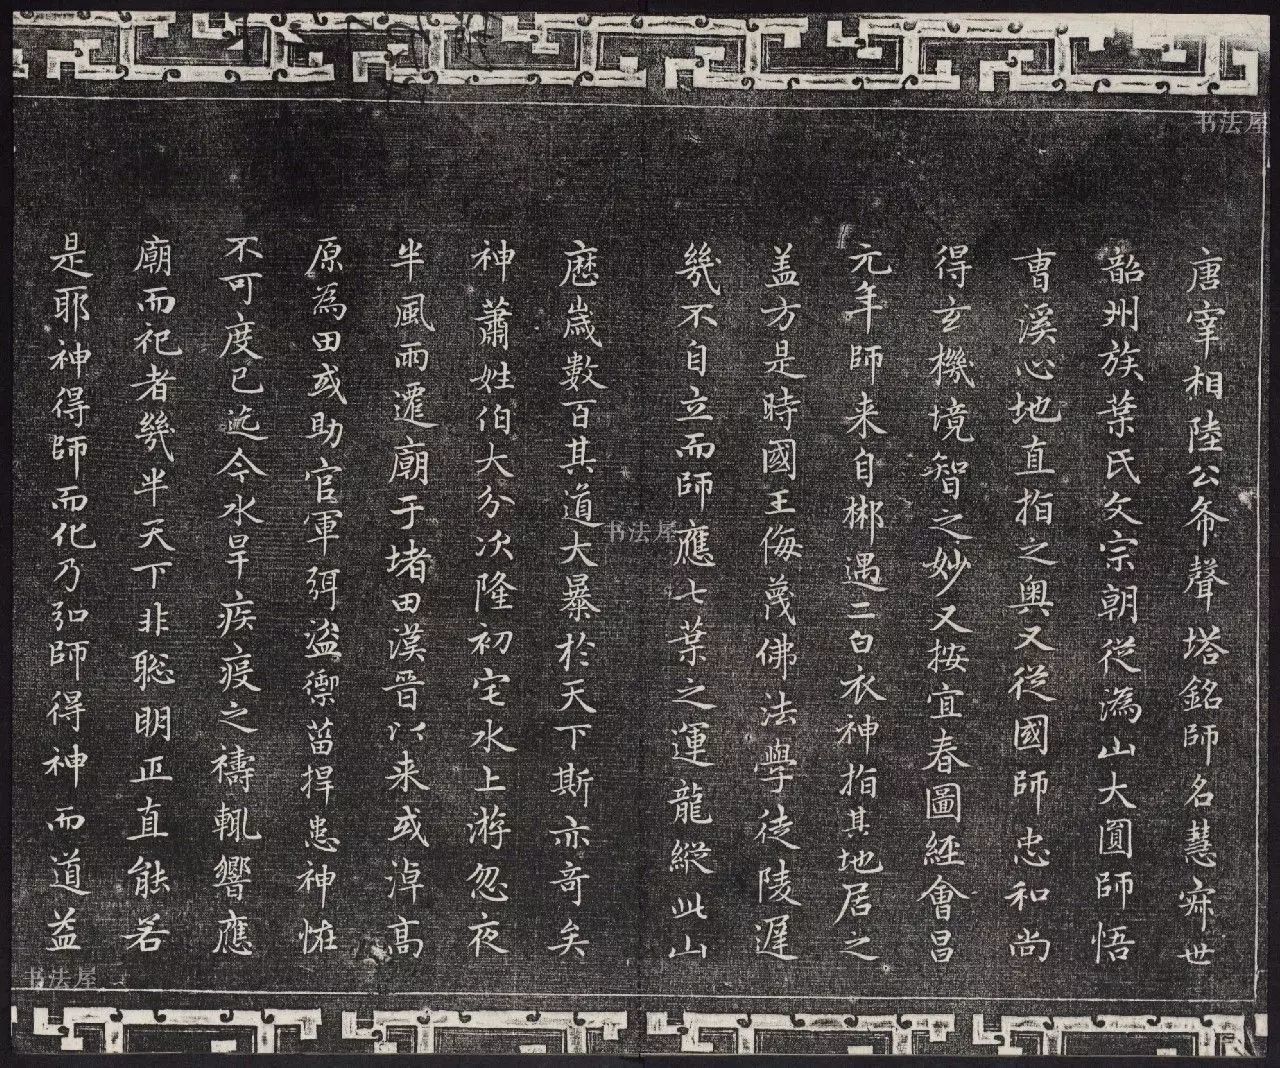 唐宰相陸公希聲塔銘師名慧寂世
韶州族葉氏文宗朝從溈山大圓師悟
曹溪心地直指之奧又從國師忠和尚
得玄機境智之妙又按宜春圖經會昌
元年師来自郴遇二白衣神指其地居之
盖方是時國王侮蔑佛法學徒陵遲
幾不自立而師應七葉之運龍縱此山
歷歲數百其道大暴於天下斯亦奇矣
神蕭姓伯大分次隆初宅水上游忽夜
半風雨遷廟于堵田漢晉以来或淖高
原為田或助官軍弭盜禦菑捍患神怪
不可度已迄今水旱疾疫之禱輒響應
廟而祀者幾半天下非聡明正直能若
是耶神得師而化乃弘師得神而道益
书法屋
书法屋
书法屋